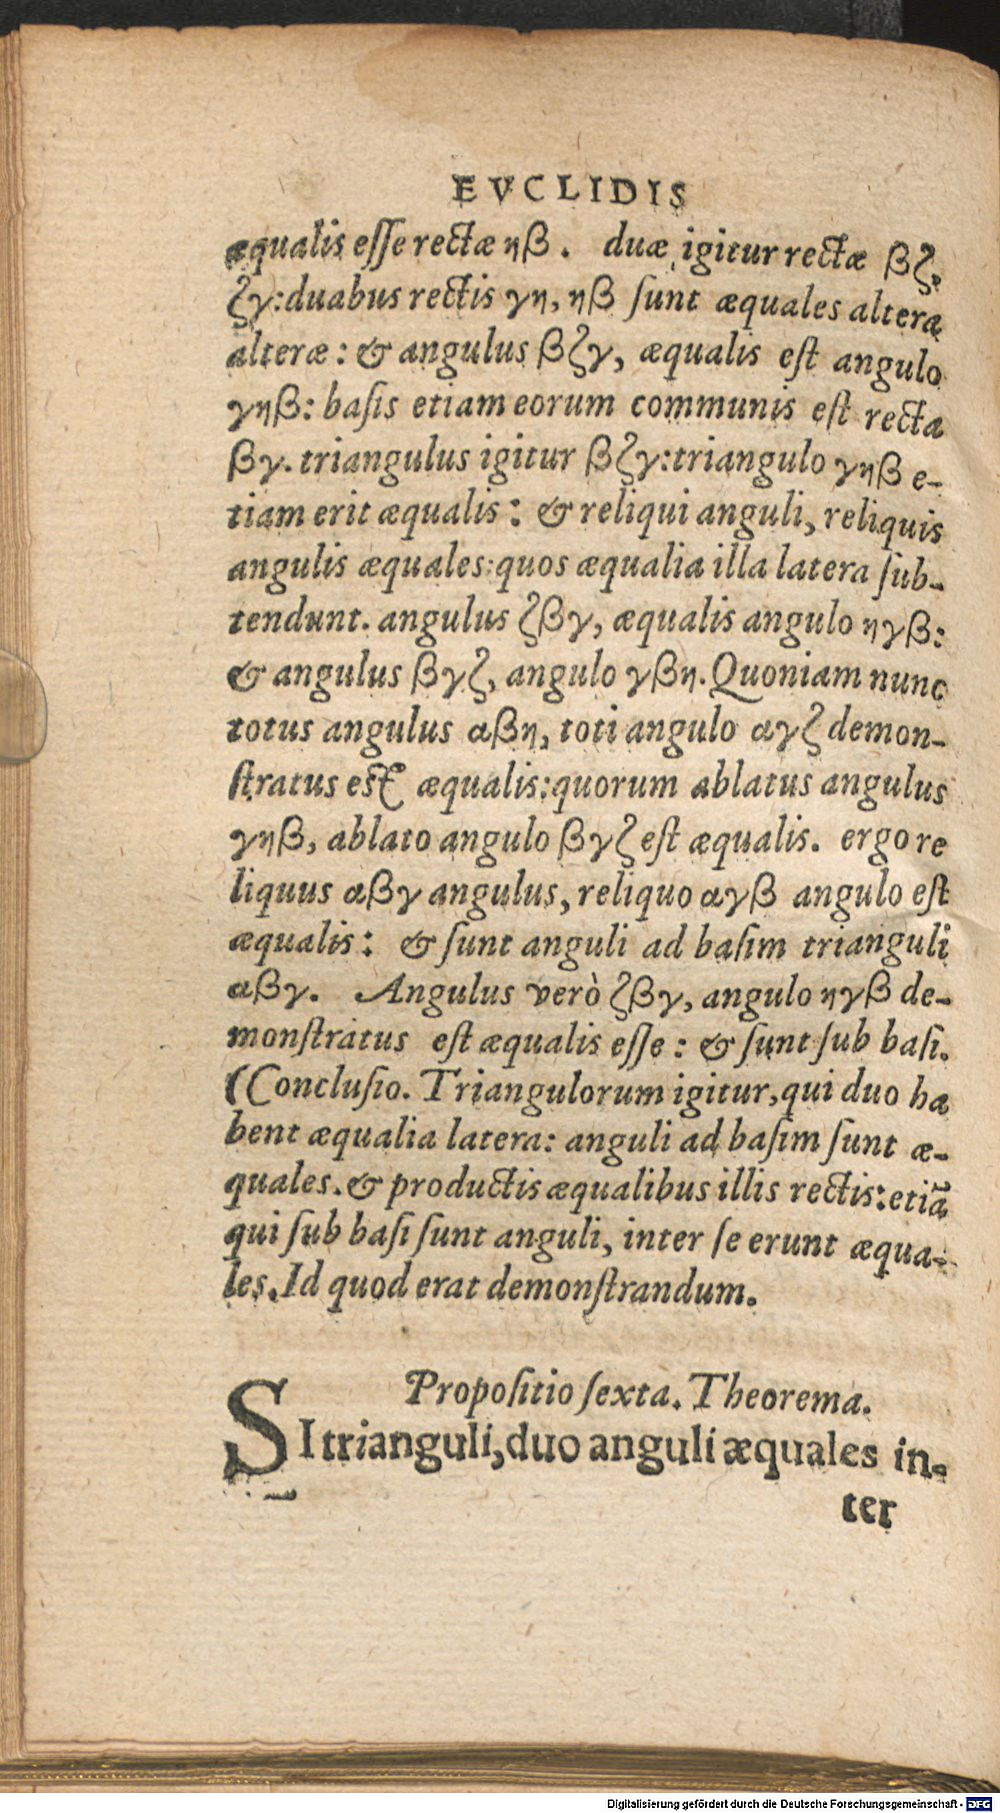 EVCLIDIS
æqualis eſſe rectæ ηβ. duæ igitur rectæ βζ,
ζγ: duabus rectis γη, ηβ ſunt æquales altera
alteræ: & angulus βζγ, æqualis eſt angulo
γηβ: baſis etiam eorum communis eſt recta
βγ. triangulus igitur βζγ: triangulo γηβ e-
tiam erit æqualis: & reliqui anguli, reliquis
angulis æquales: quos æqualia illa latera ſub-
tendunt. angulus ζβγ, æqualis angulo ηγβ:
& angulus βγζ, angulo γβη. Quoniam nunc
totus angulus αβη, toti angulo αγζ demon-
ſtratus eſt æqualis: quorum ablatus angulus
γηβ, ablato angulo βγζ eſt æqualis. ergo re
liquus αβγ angulus, reliquo αγβ angulo eſt
æqualis: & ſunt anguli ad baſim trianguli
αβγ. Angulus verò ζβγ, angulo ηγβ de-
monſtratus eſt æqualis eſſe: & ſunt ſub baſi.
(Concluſio. Triangulorum igitur, qui duo ha
bent æqualia latera: anguli ad baſim ſunt æ-
quales. & productis æqualibus illis rectis: etiã
qui ſub baſi ſunt anguli, inter ſe erunt æqua-
les. Id quod erat demonſtrandum.
Propoſitio ſexta. Theorema.
SI trianguli, duo anguli æquales in-
ter
Digitalisierung gefördert durch die Deutsche Forschungsgemeinschaft - DFG